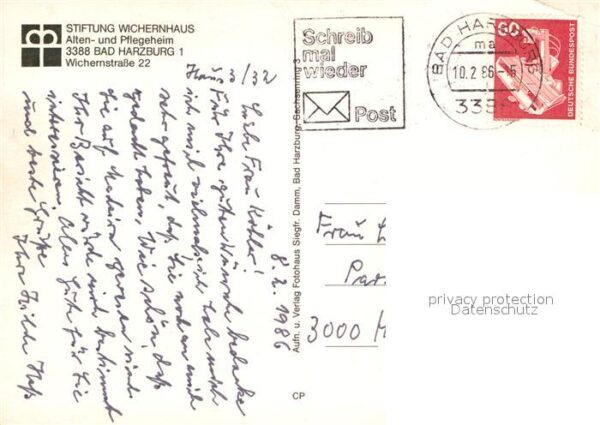 STIFTUNG WICHERNHAUS
Alten- und Pflegeheim
3388 BAD HARZBURG 1
Wichernstraße 22
Haus 5/32
8.2.1986
Liebe Frau Köhler!
Für Ihre guten Wünsche bedanke
ich mich vielmals, ich habe mich
sehr gefreut, daß Sie noch an mich
gedacht haben. Wie schön, daß
Sie auf Madeira gewesen sind.
Ihr Bericht würde mich bestimmt
interessieren. Alles Gute für Sie
und beste Grüße
Ihre Hilde Heß
Aufn. u. Verlag Fotohaus Siegfr. Damm, Bad Harzburg, Sachsenring 3
CP
Schreib
mal
wieder
Post
BAD HARZBURG
ma
10.2.86-15
3388
60
DEUTSCHE BUNDESPOST
Frau
Par
3000 H
privacy protection
Datenschutz